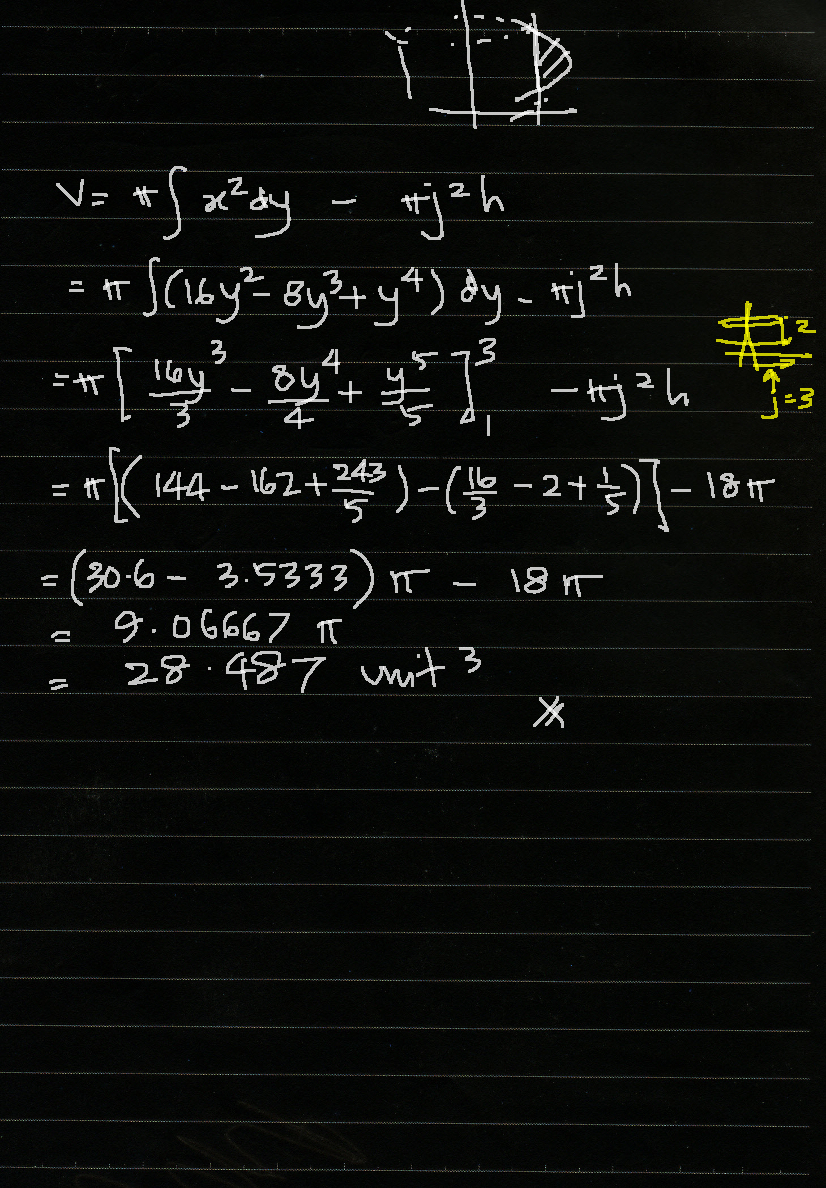 V = π∫ x² dy - πj²h
= π ∫(16y² - 8y³ + y⁴) dy - πj²h
= π [ 16y³/3 - 8y⁴/4 + y⁵/5 ]³₁ - πj²h
2
j = 3
= π[( 144 - 162 + 243/5 ) - ( 16/3 - 2 + 1/5 )] - 18π
= (30.6 - 3.5333) π - 18π
= 9.06667 π
= 28.487 unit ³